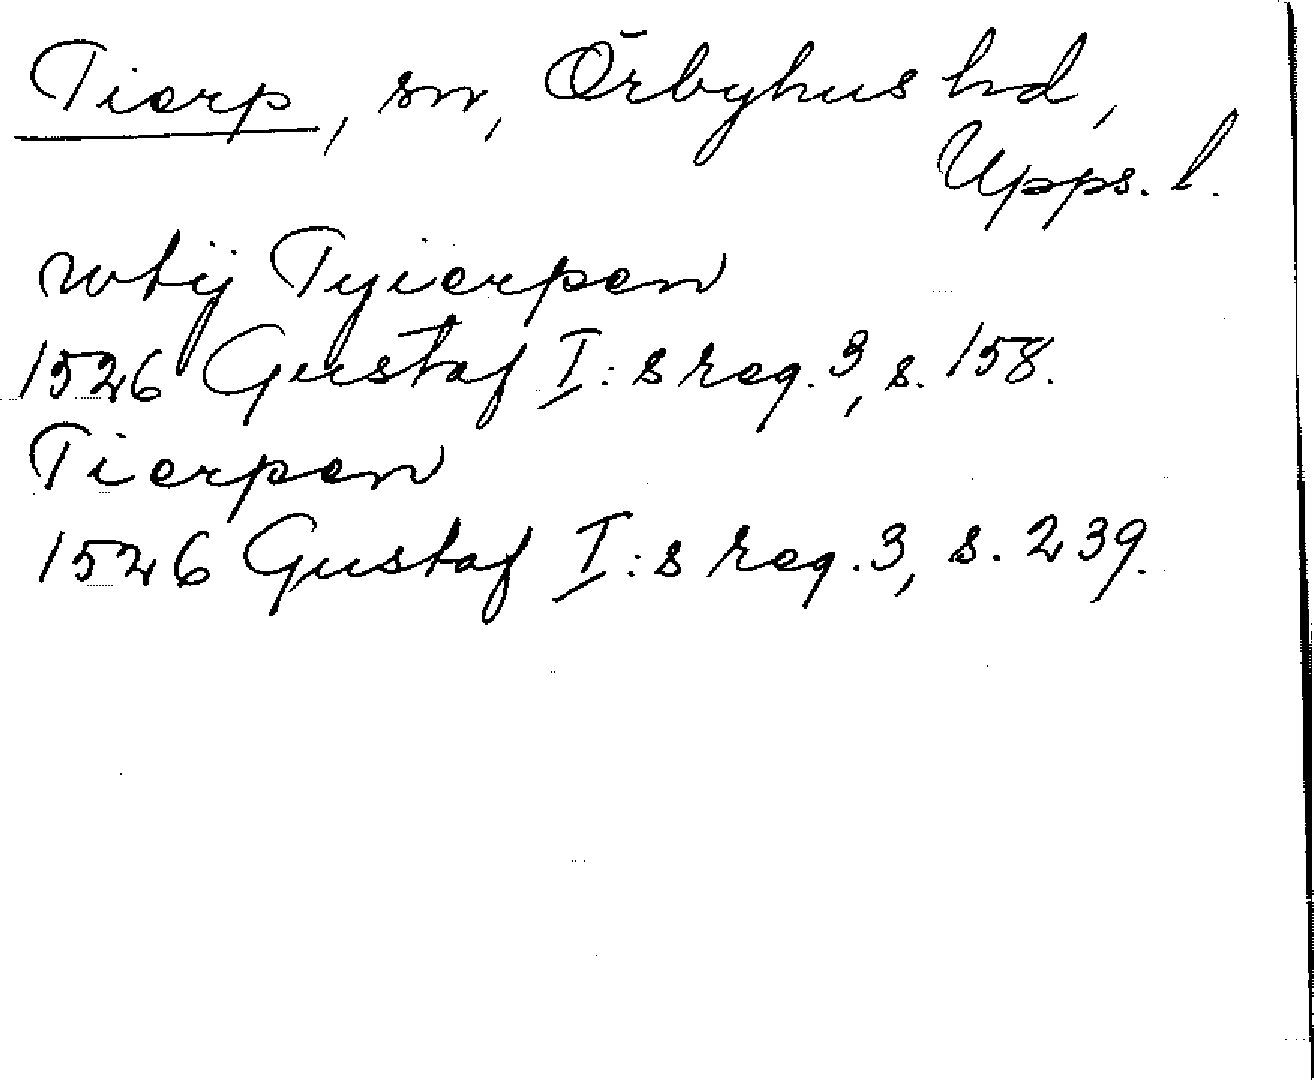 Tierp, sn, Örbyhus hd,
Upps. l.
wtij Tyierpen
1526 Gustaf I:s reg. 3, s. 158.
Tierpen
1526 Gustaf I:s reg. 3, s. 239.